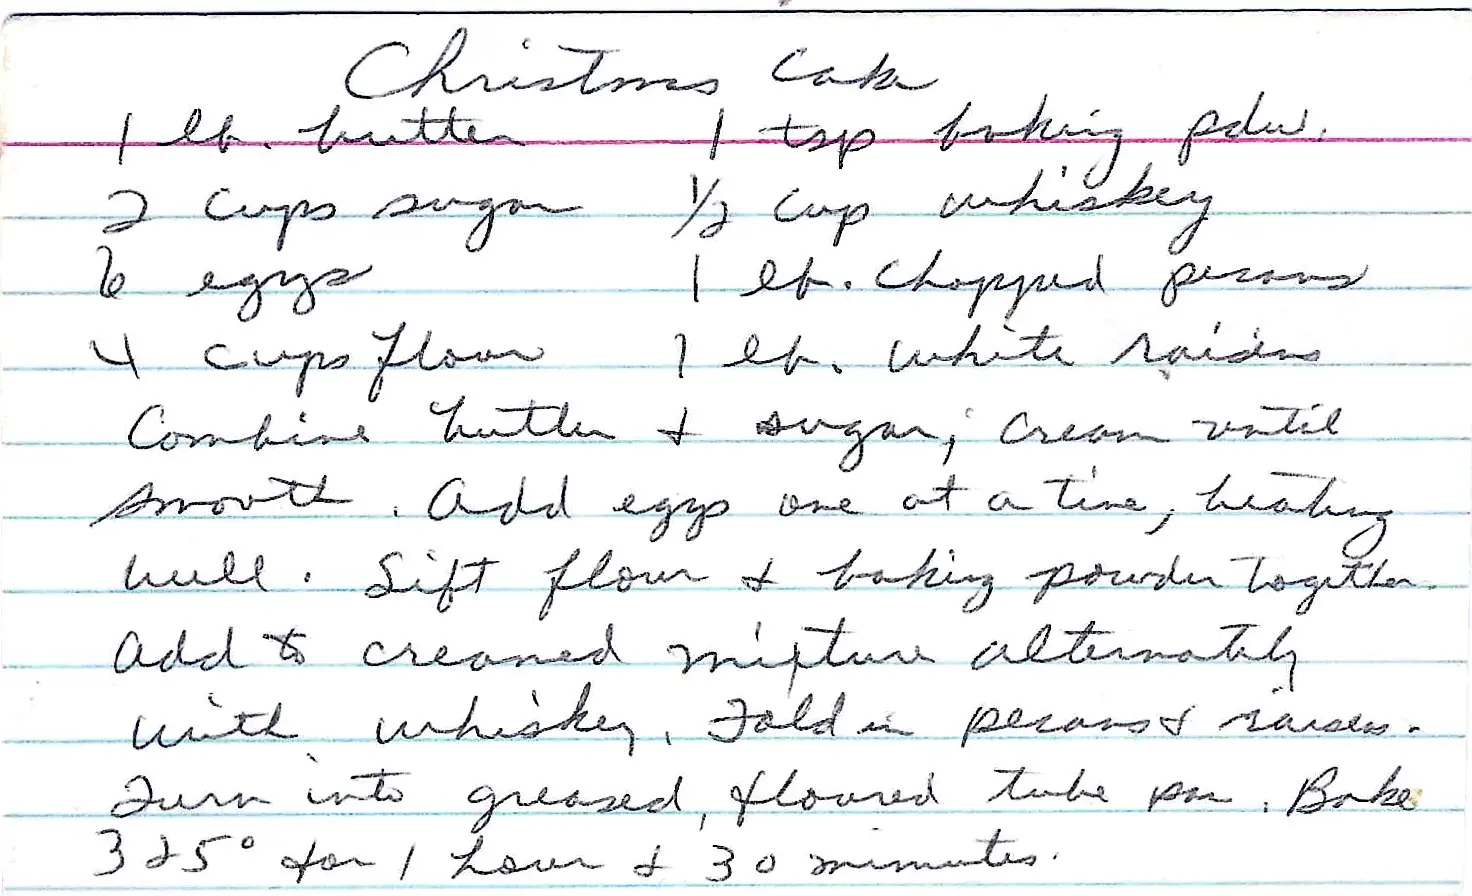 Christmas Cake
1 lb. butter 1 tsp baking pdw.
2 cups sugar 1/2 cup whiskey
6 eggs 1 lb. chopped pecans
4 cups flour 1 lb. white raisins
Combine butter & sugar; cream until
smooth. Add eggs one at a time, beating
well. Sift flour & baking powder together.
Add to creamed mixture alternately
with whiskey. Fold in pecans & raisins.
Turn into greased, floured tube pan. Bake
325° for 1 hour & 30 minutes.